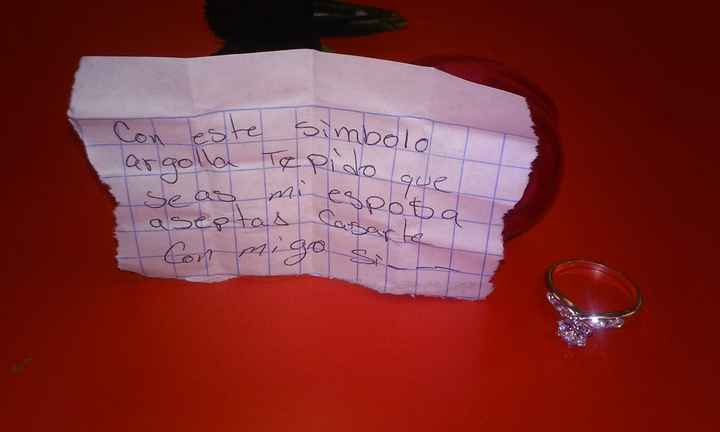 Con este simbolo
argolla Te pido que
seas mi esposa
aseptas Casarte
Con migo si